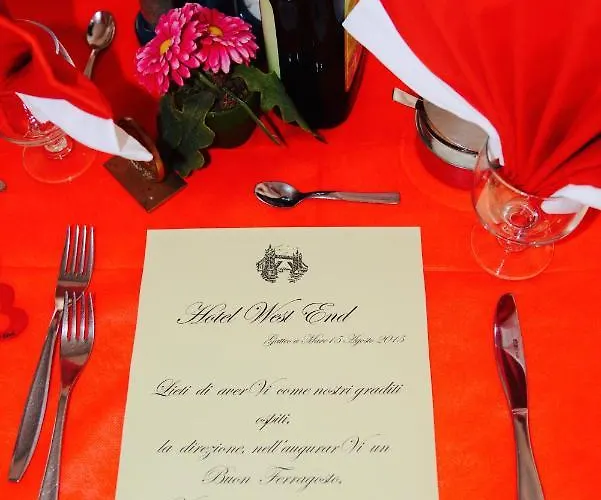 Hotel West End
Gatteo a Mare 15 Agosto 2015
Lieti di averVi come nostri graditi
ospiti,
la direzione, nell'augurarVi un
Buon Ferragosto,